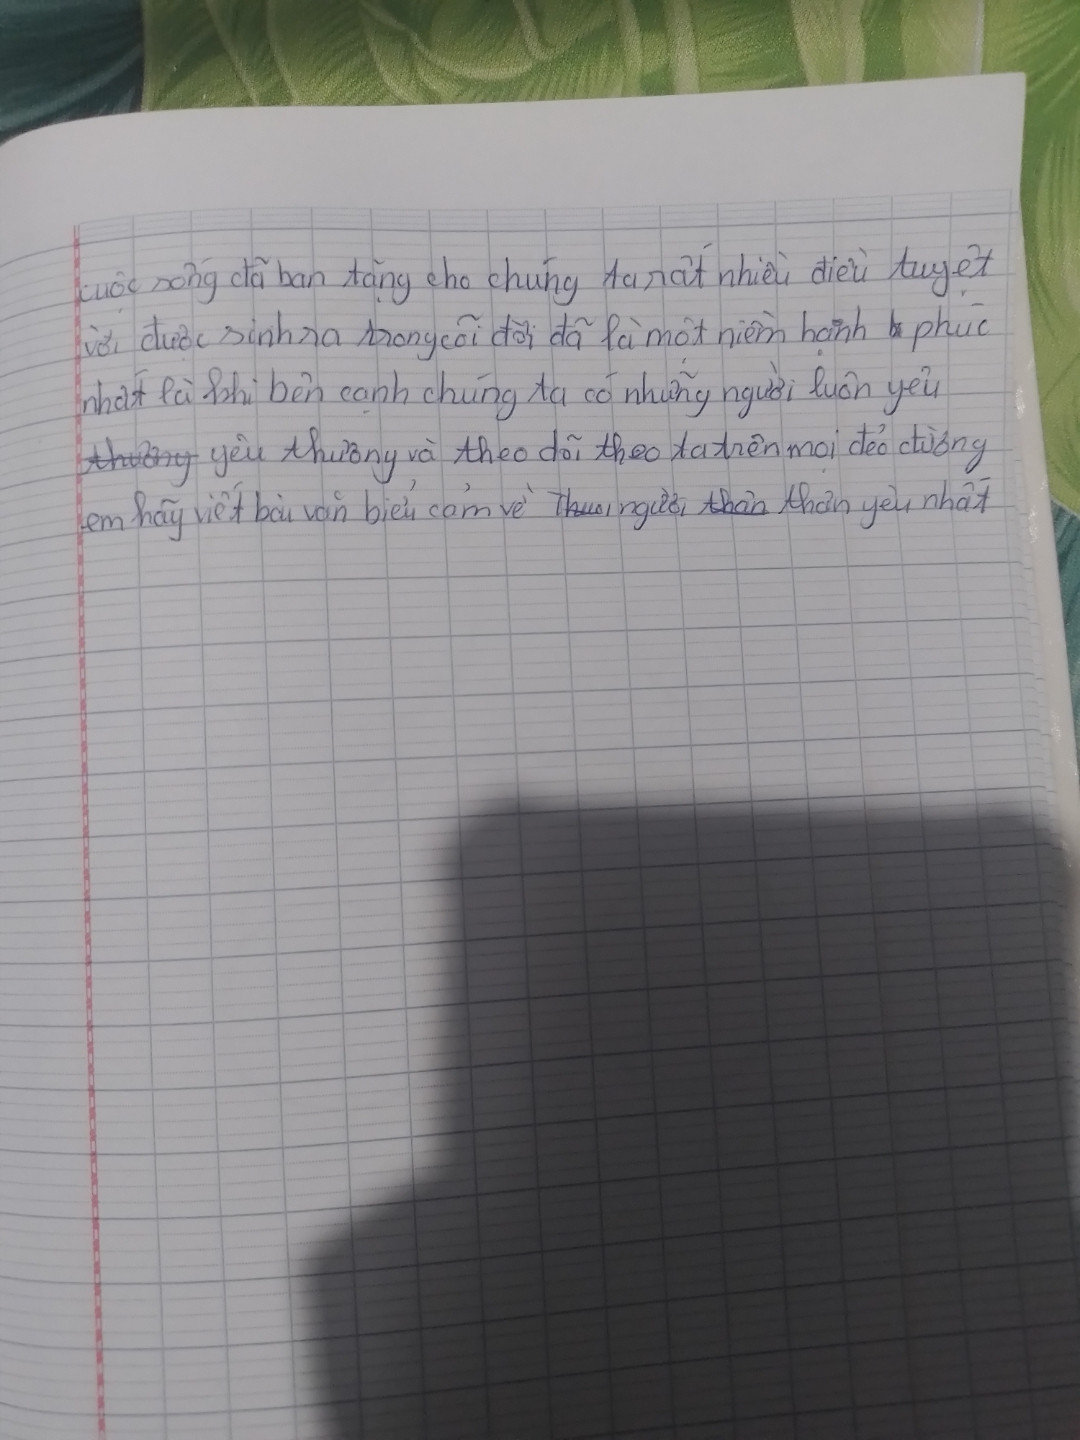 cuộc sống đã ban tặng cho chúng ta rất nhiều điều tuyệt
vời được sinh ra trong cõi đời đã là một niềm hạnh phúc
nhất là khi bên cạnh chúng ta có những người luôn yêu
thương yêu thương và theo dõi theo ta trên mọi dẻo đường
em hãy viết bài văn biểu cảm về người thân thân yêu nhất